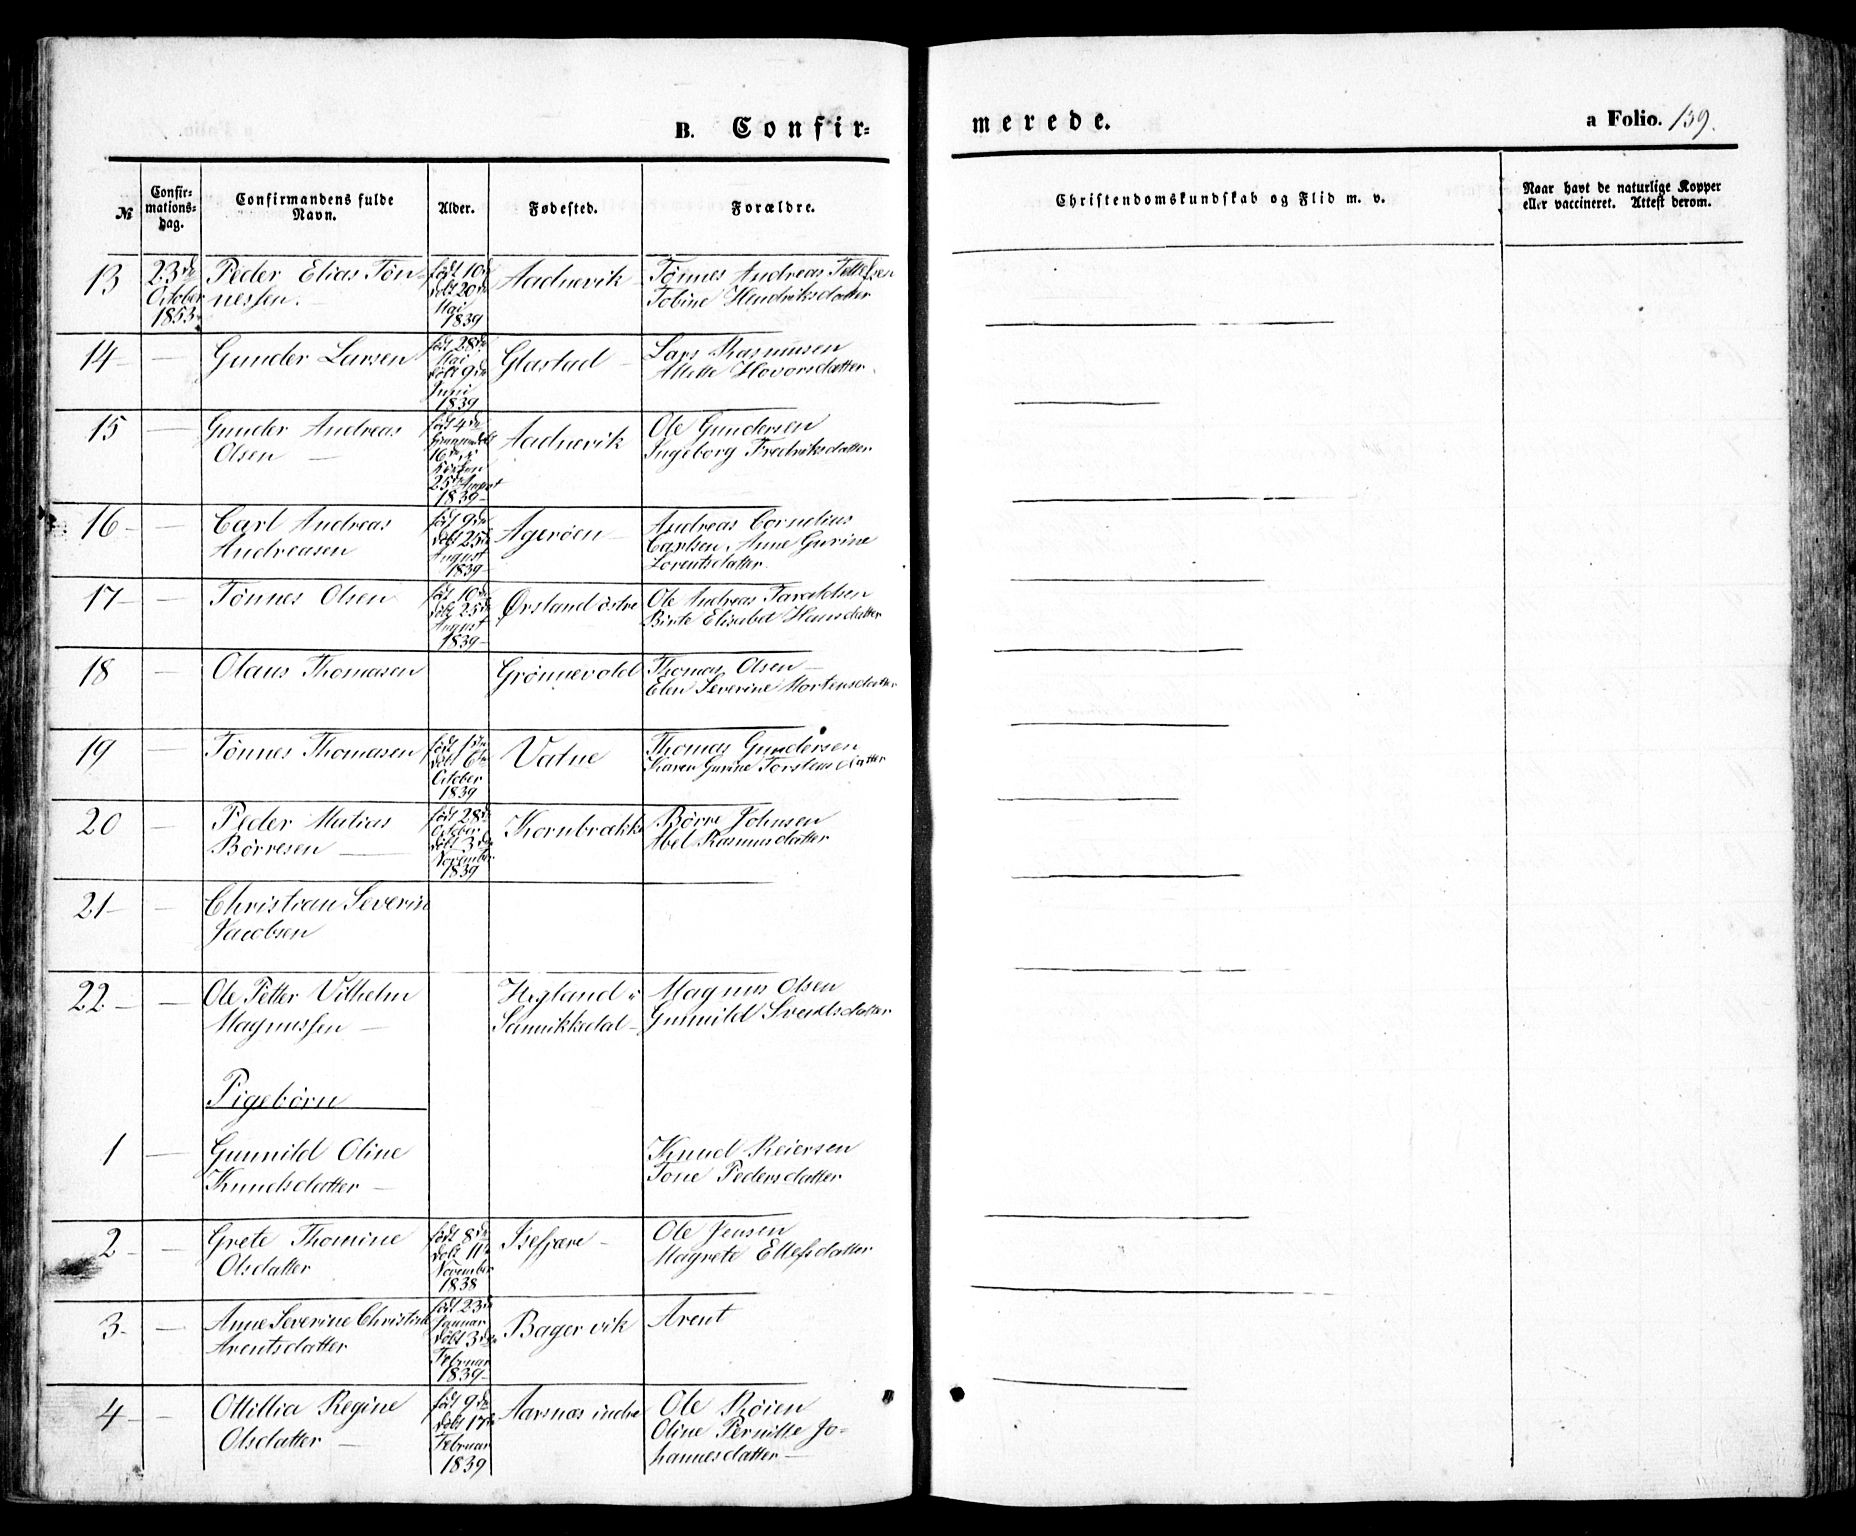 B. Confir=
merede.
a Folio. 139.
№
Confir=
mations=
dag.
Confirmandens fulde
Navn.
Alder.
Fødested.
Forældre.
Christendomskundskab og Flid m. v.
Naar havt de naturlige Kopper
eller vaccineret. Attest derom.
13 23de October 1853 Peder Elias Tön-
nessen.
født 10de
døbt 20de
Mai
1839
Aadnevik
Tønnes Andreas Tellefsen
Tobine Hendriksdatter
14 — Gunder Larsen
født 28de
Mai
døbt 9de
Juni
1839
Glastad
Lars Rasmusen
Allette Hovorsdatter
15 — Gunder Andreas
Olsen —
født 4de
16de
Kirken
25de August
1839
Aadnevik
Ole Gundersen
Ingeborg Fredriksdatter
16 — Carl Andreas
Andreasen
født 9de
døbt 25de
August
1839
Ageröen
Andreas Cornelius
Carlsen, Anne Gurine
Lorentsdatter
17 — Tönnes Olsen
født 10de
døbt 25de
August
1839
Ørsland östre
Ole Andreas
Birte Elisabet Hansdatter
18 — Olaus Thomasen
Grönnevold
Thomas Olsen —
Elen Severine Mortensdatter
19 — Tönnes Thomasen
født
døbt 6te
October
1839
Vatne
Thomas Gundersen
Karen Gurine Torstensdatter
20 — Peder Matias
Börresen —
født 28de
October
døbt 3die
November
1839
Kornbrække
Börre Johnsen
Abel Rasmusdatter
21 — Christian Severin
Jacobsen
22 — Ole Petter Vilhelm
Magnussen —
Hegland i
Sannikkedal
Magnus Olsen
Gunnild Svendsdatter
Pigebörn
1 — Gunnild Oline
Knudsdatter —
Knud Reiersen
Tone Pedersdatter
2 — Grete Thomine
Olsdatter
født 8de
døbt 11te
November
1838
Isefjære
Ole Jensen
Magrete Ellefsdatter
3 — Anne Severine Christine
Arentsdatter
født 23de
Januar
døbt 3die
Februar
1839
Bagervik
Arent
4 — Ottillia Regine
Olsdatter —
født 9de
døbt 17de
Februar
1839
Aarsnæs indre
Ole Röien
Oline Pernille Jo-
hannesdatter —